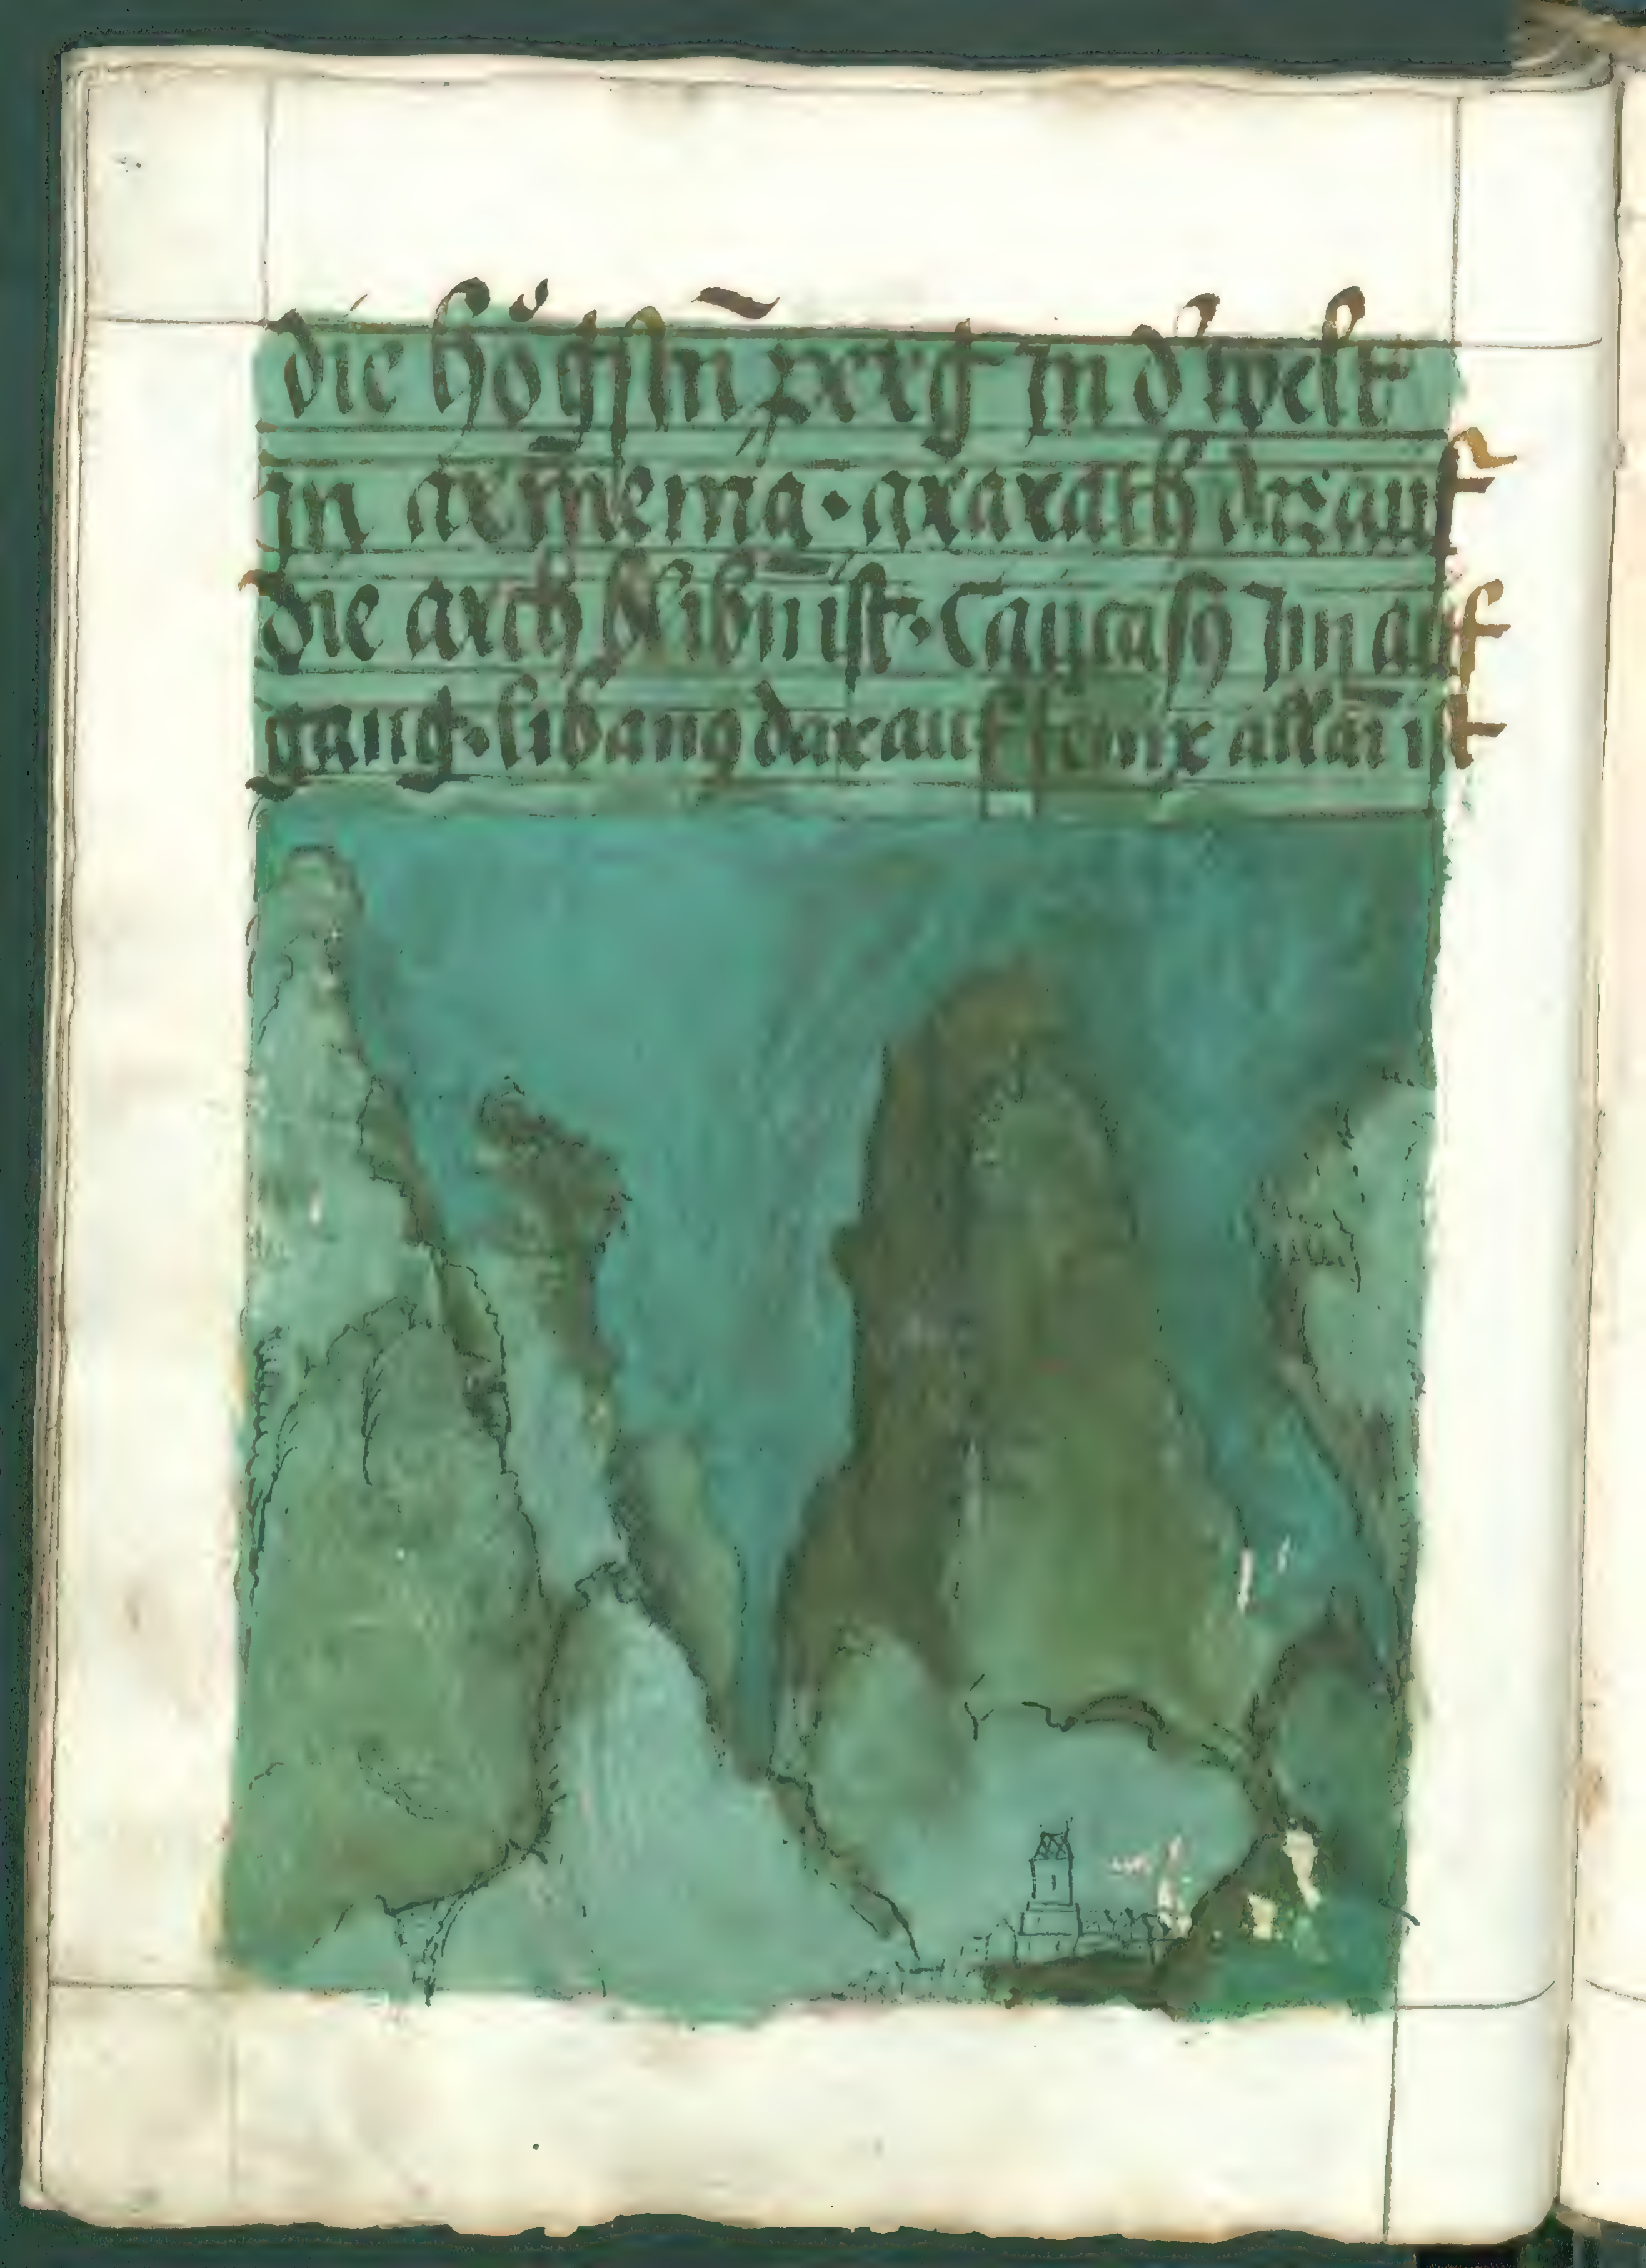 die högstn̄ perg Jn d' welt
jn arm̄enia · ararath dar auf
die arch blibn̄ ist · Caucasꝰ Jm auf
gang · libanꝰ darauf fenix allai ist